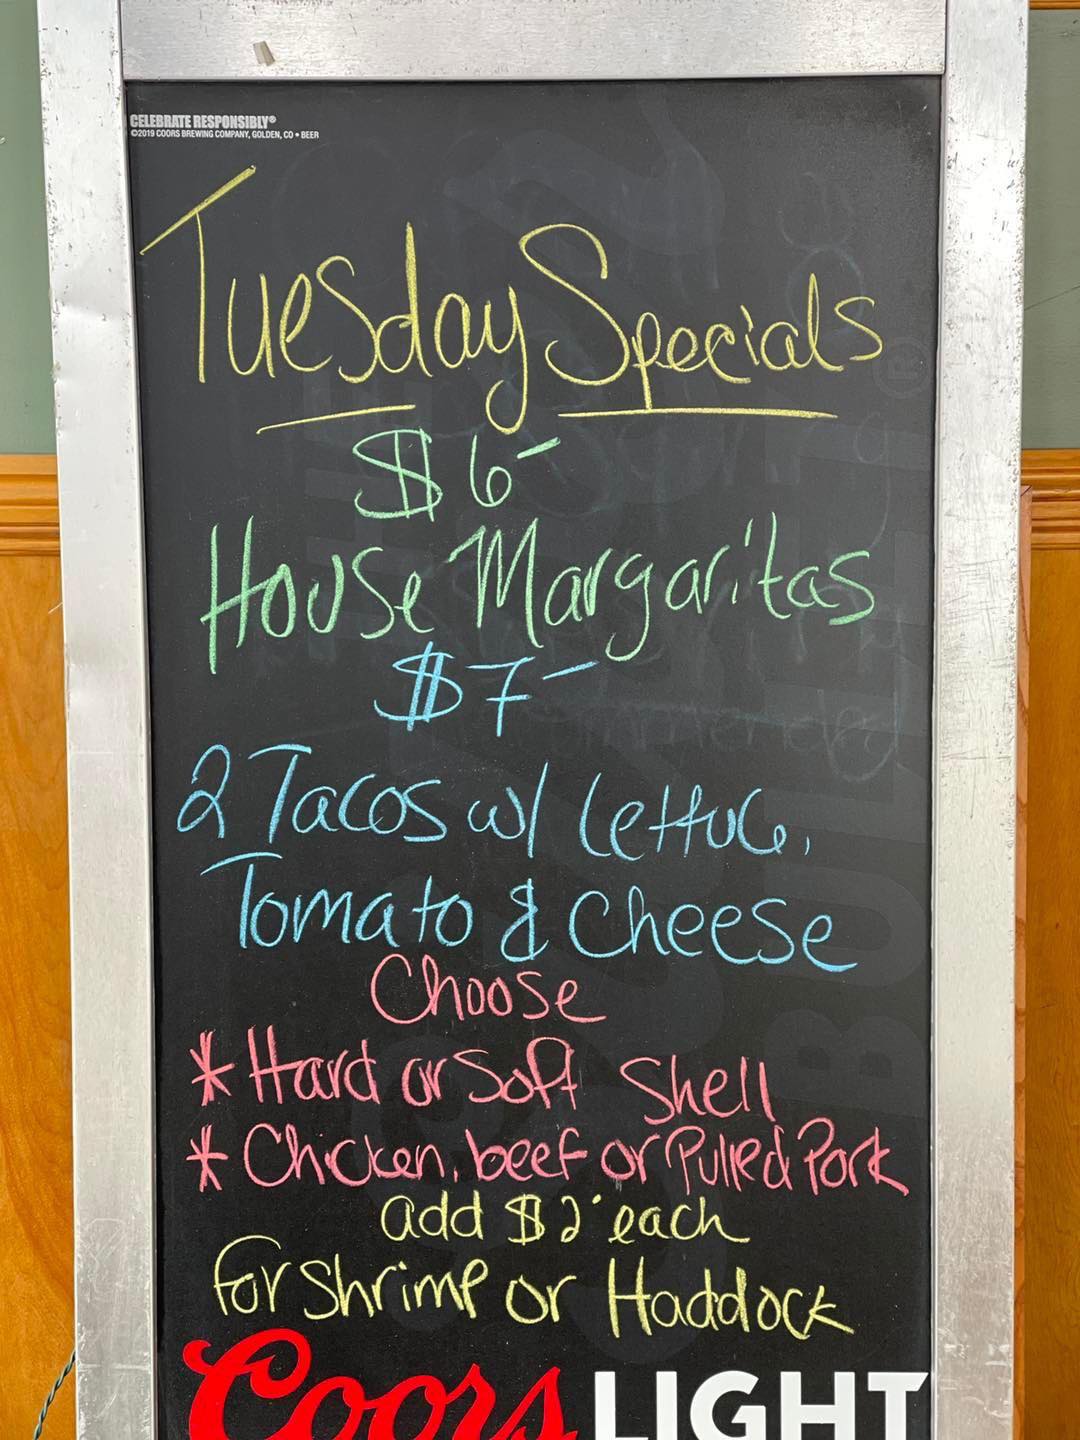 CELEBRATE RESPONSIBLY®
©2019 COORS BREWING COMPANY, GOLDEN, CO • BEER
Tuesday Specials
$6-
House Margaritas
$7-
2 Tacos w/ Lettuce,
Tomato & Cheese
Choose
* Hard or Soft Shell
* Chicken, beef or Pulled Pork
add $2 each
for Shrimp or Haddock
Coors LIGHT